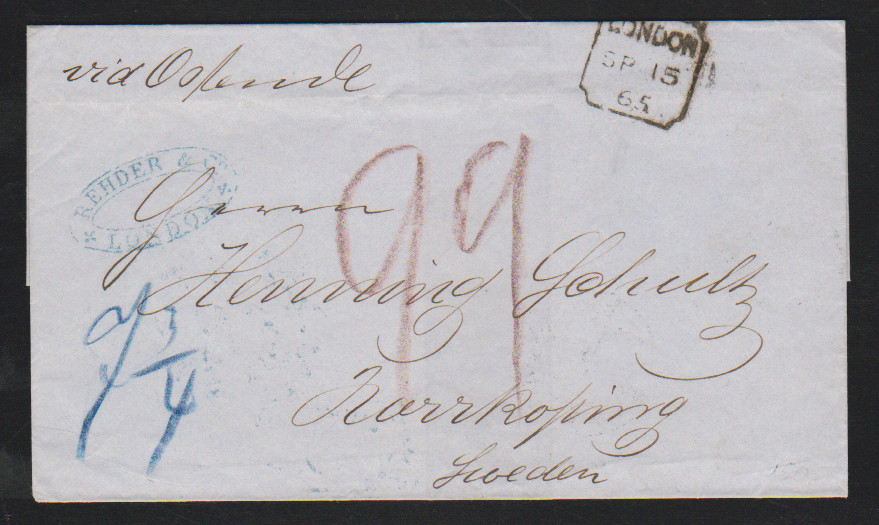 via Ostende
LONDON
SP 15
65
REHDER & C
LONDON
Herrn
Henning Schultz
Norrkoping
Sweden
99